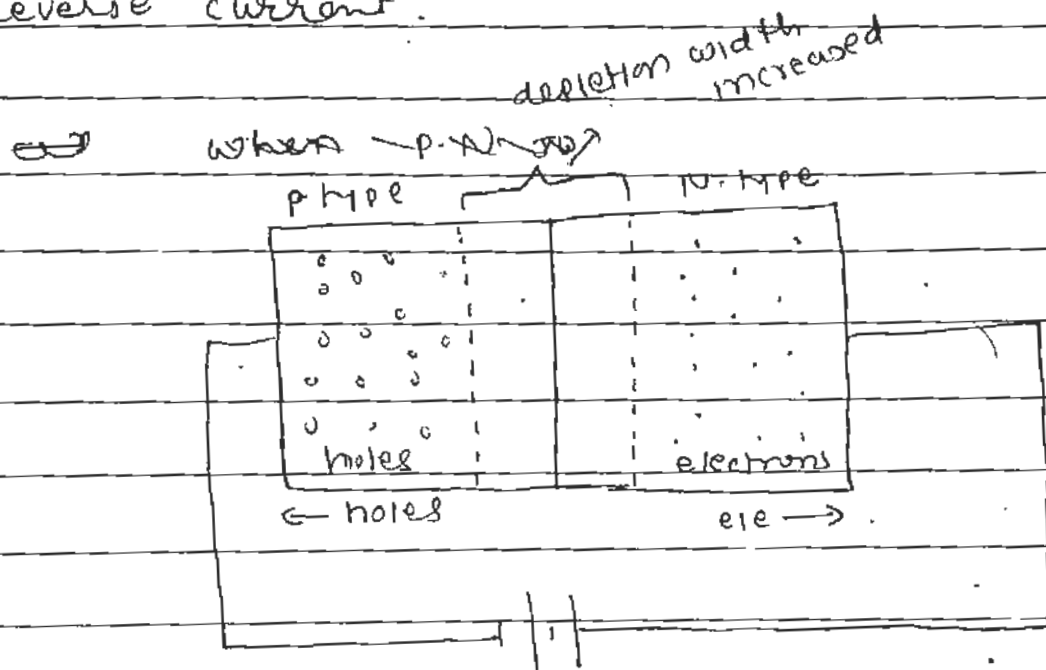 everse current.
depletion width
increased
when P-N
p type
N-type
holes
electrons
← holes
ele →